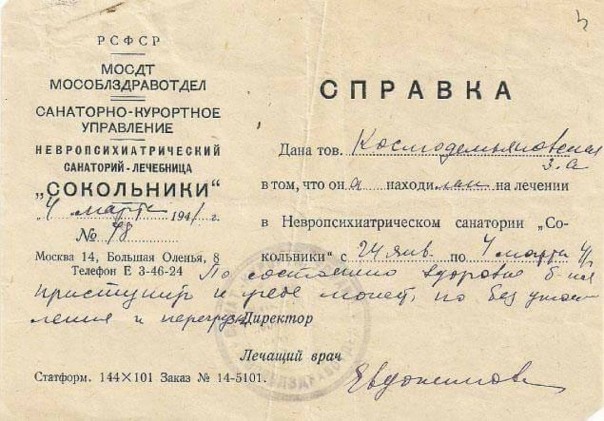 РСФСР
МОСДТ
МОСОБЛЗДРАВОТДЕЛ
САНАТОРНО-КУРОРТНОЕ
УПРАВЛЕНИЕ
НЕВРОПСИХИАТРИЧЕСКИЙ
САНАТОРИЙ-ЛЕЧЕБНИЦА
„СОКОЛЬНИКИ“
„4 марта 1941 г.
№ 78
Москва 14, Большая Оленья, 8
Телефон Е 3-46-24
СПРАВКА
Дана тов. Космодемьяновская
З.А
в том, что она находилась на лечении
в Невропсихиатрическом санатории „Со-
кольники“ с 24 янв. по 4 марта 41
По состоянию здоровья б-ная
приступить к учебе может, но без утом-
ления и перегрузки
Директор
Лечащий врач
Евдокимова
Статформ. 144×101 Заказ № 14-5101.